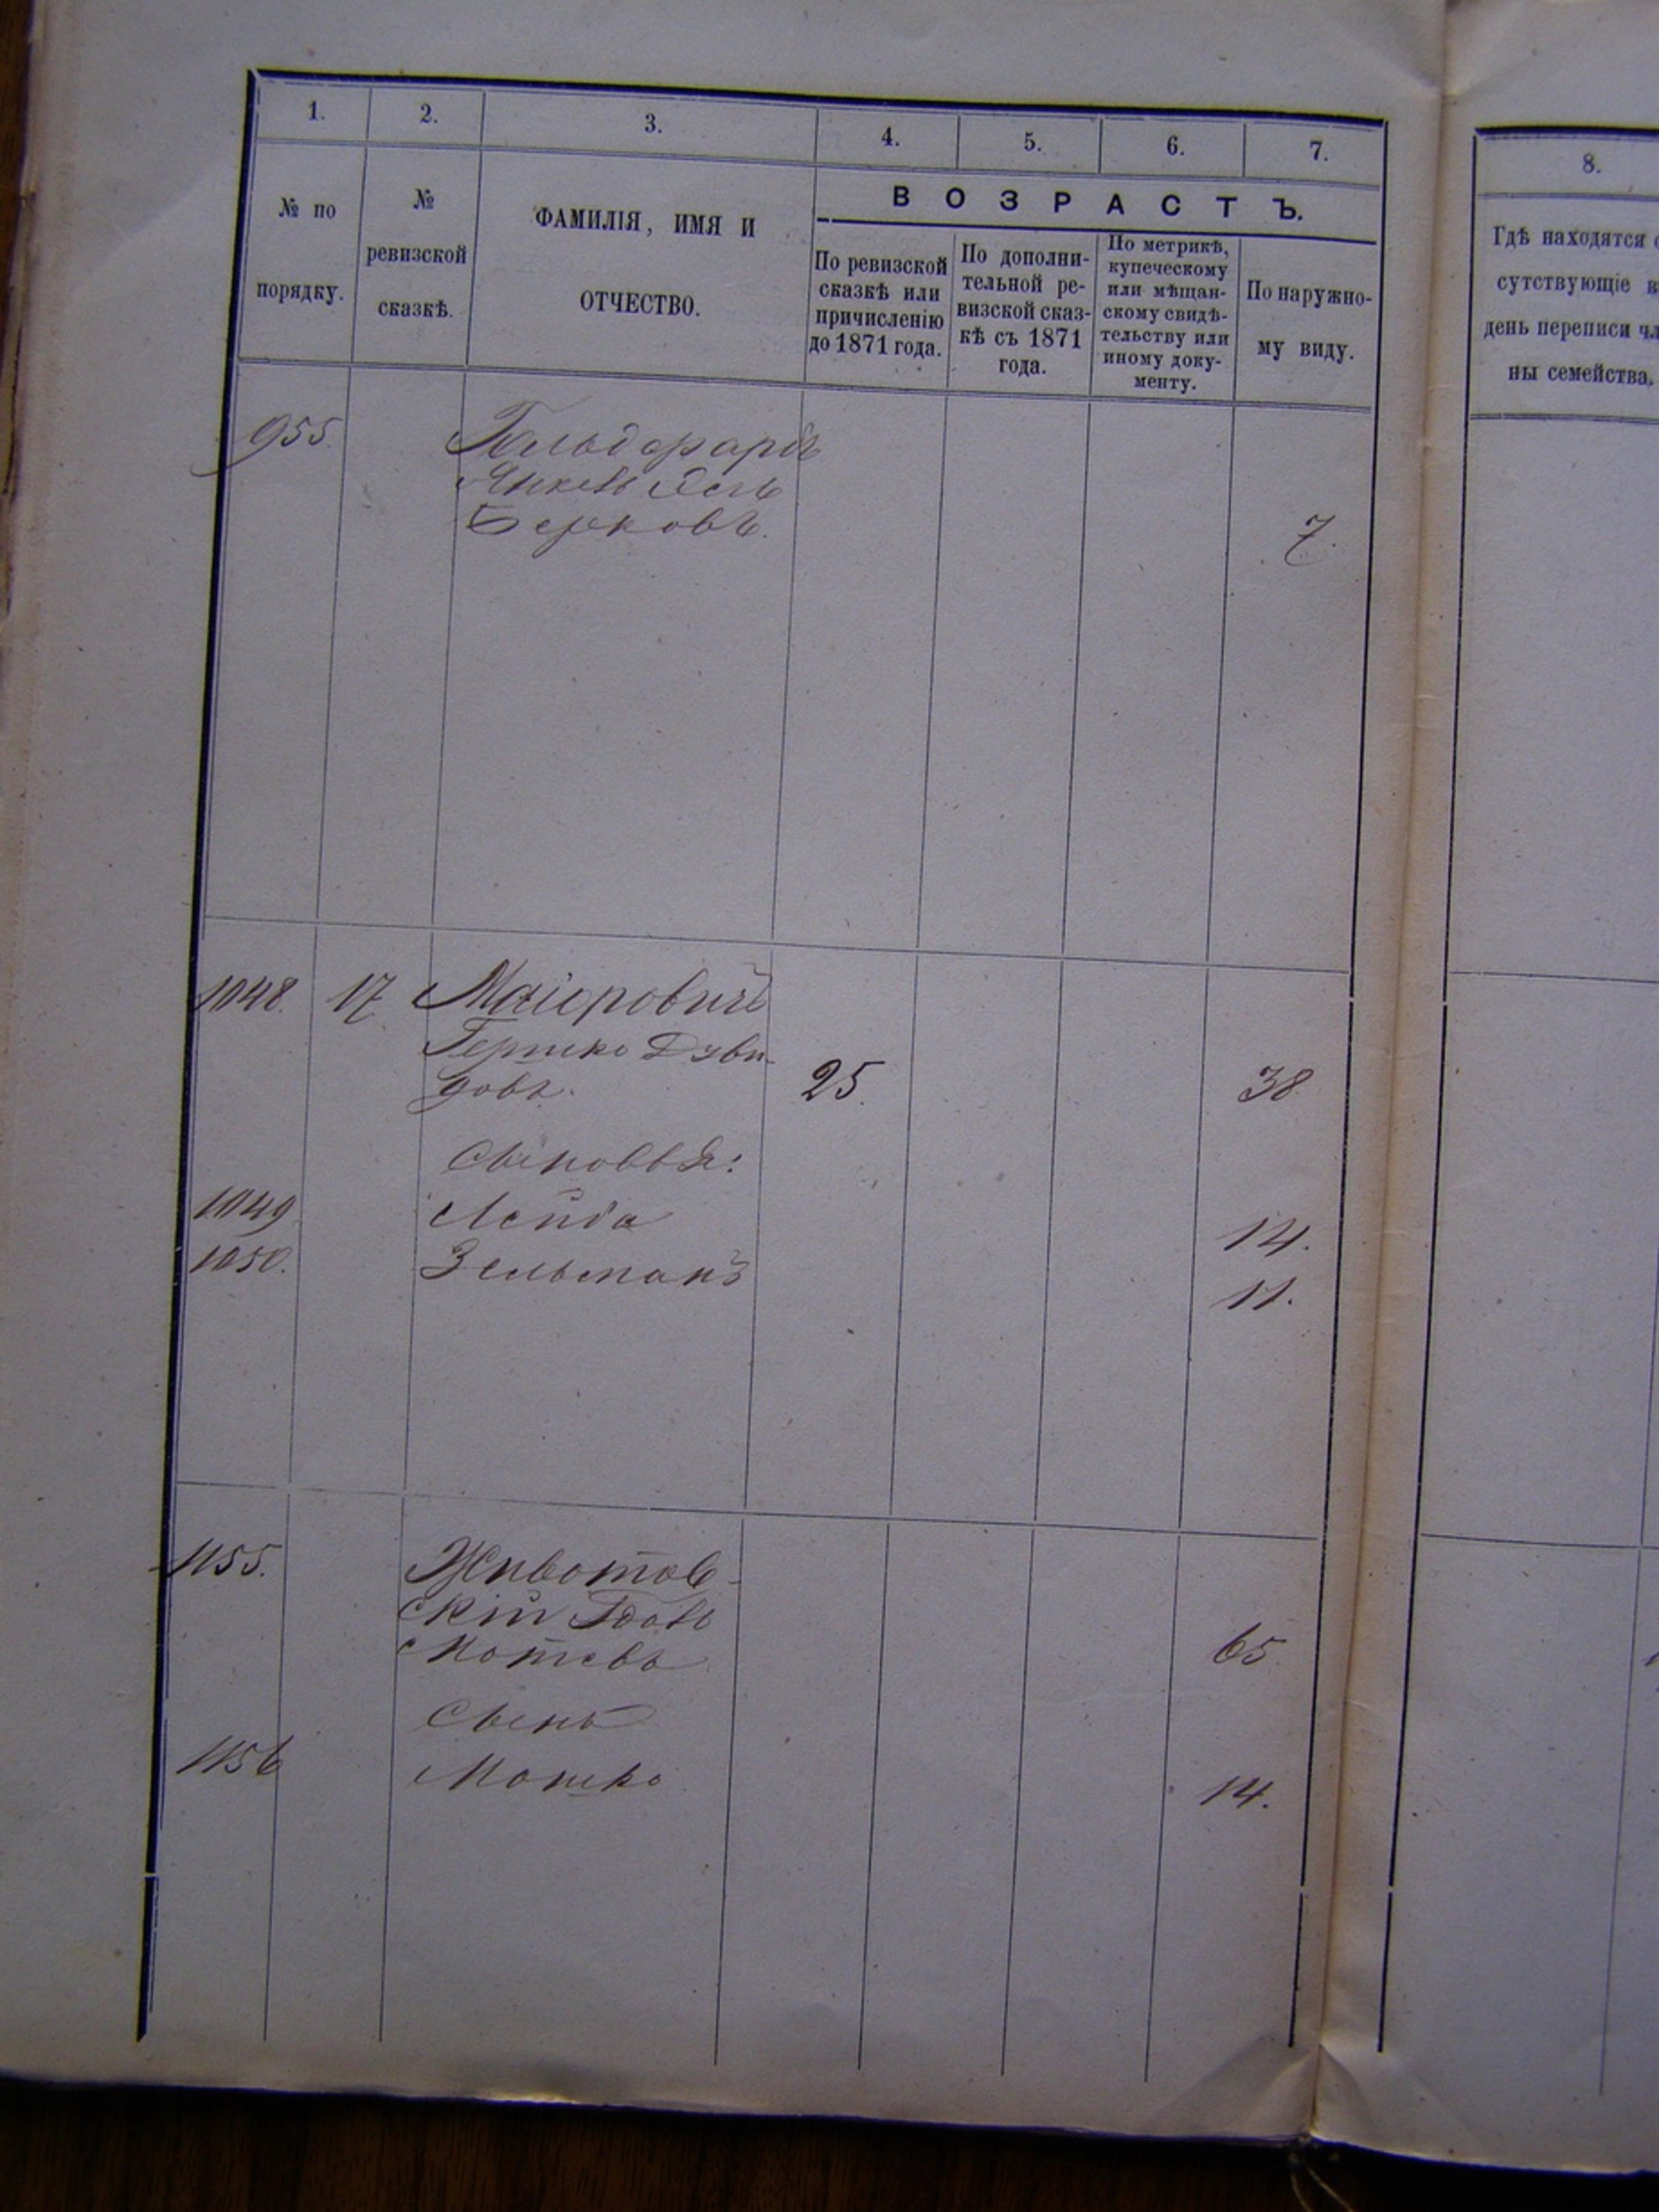 1. 2. 3. 4. 5. 6. 7. 8.
№ по порядку.
№ ревизской сказкѣ.
ФАМИЛІЯ, ИМЯ И
ОТЧЕСТВО.
ВОЗРАСТЪ.
По ревизской
сказкѣ или
причисленію
до 1871 года.
По дополни-
тельной ре-
визской сказ-
кѣ съ 1871
года.
По метрикѣ,
купеческому
или мѣщан-
скому свидѣ-
тельству или
иному доку-
менту.
По наружно-
му виду.
Гдѣ находятся
сутствующіе
день переписи
ны семейства.
955. Гольдфарбъ
Янкель
Берковъ. 7.
1048. 17 Маіоровичъ
Гершко Дуви-
довъ. 25. 38
Сыновья:
1049 Лейба 14.
1050. Зельманъ 11.
1155. Животов-
скій
Мотевъ 65
Сынъ
1156 Мошко 14.